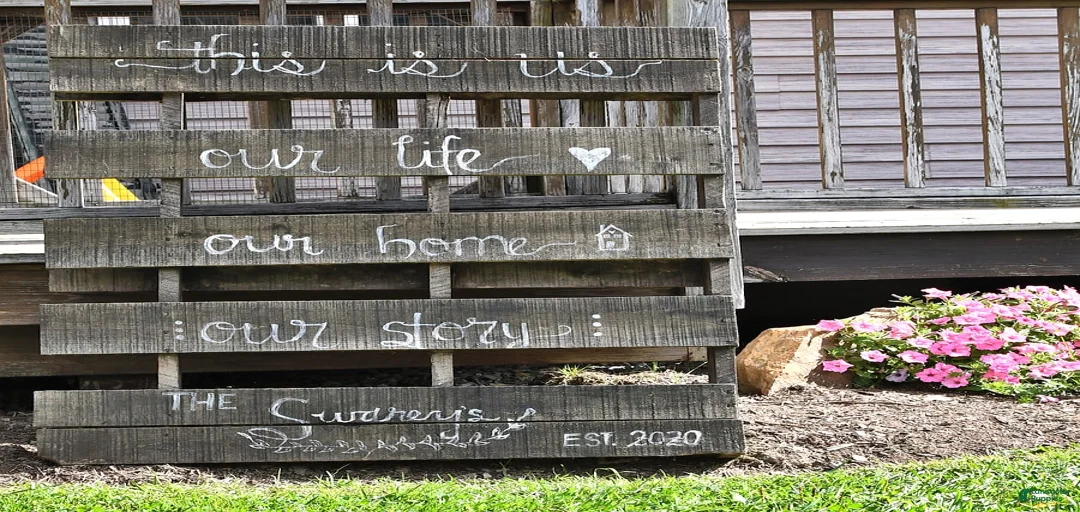 this is us
our life
our home
our story
THE
EST. 2020